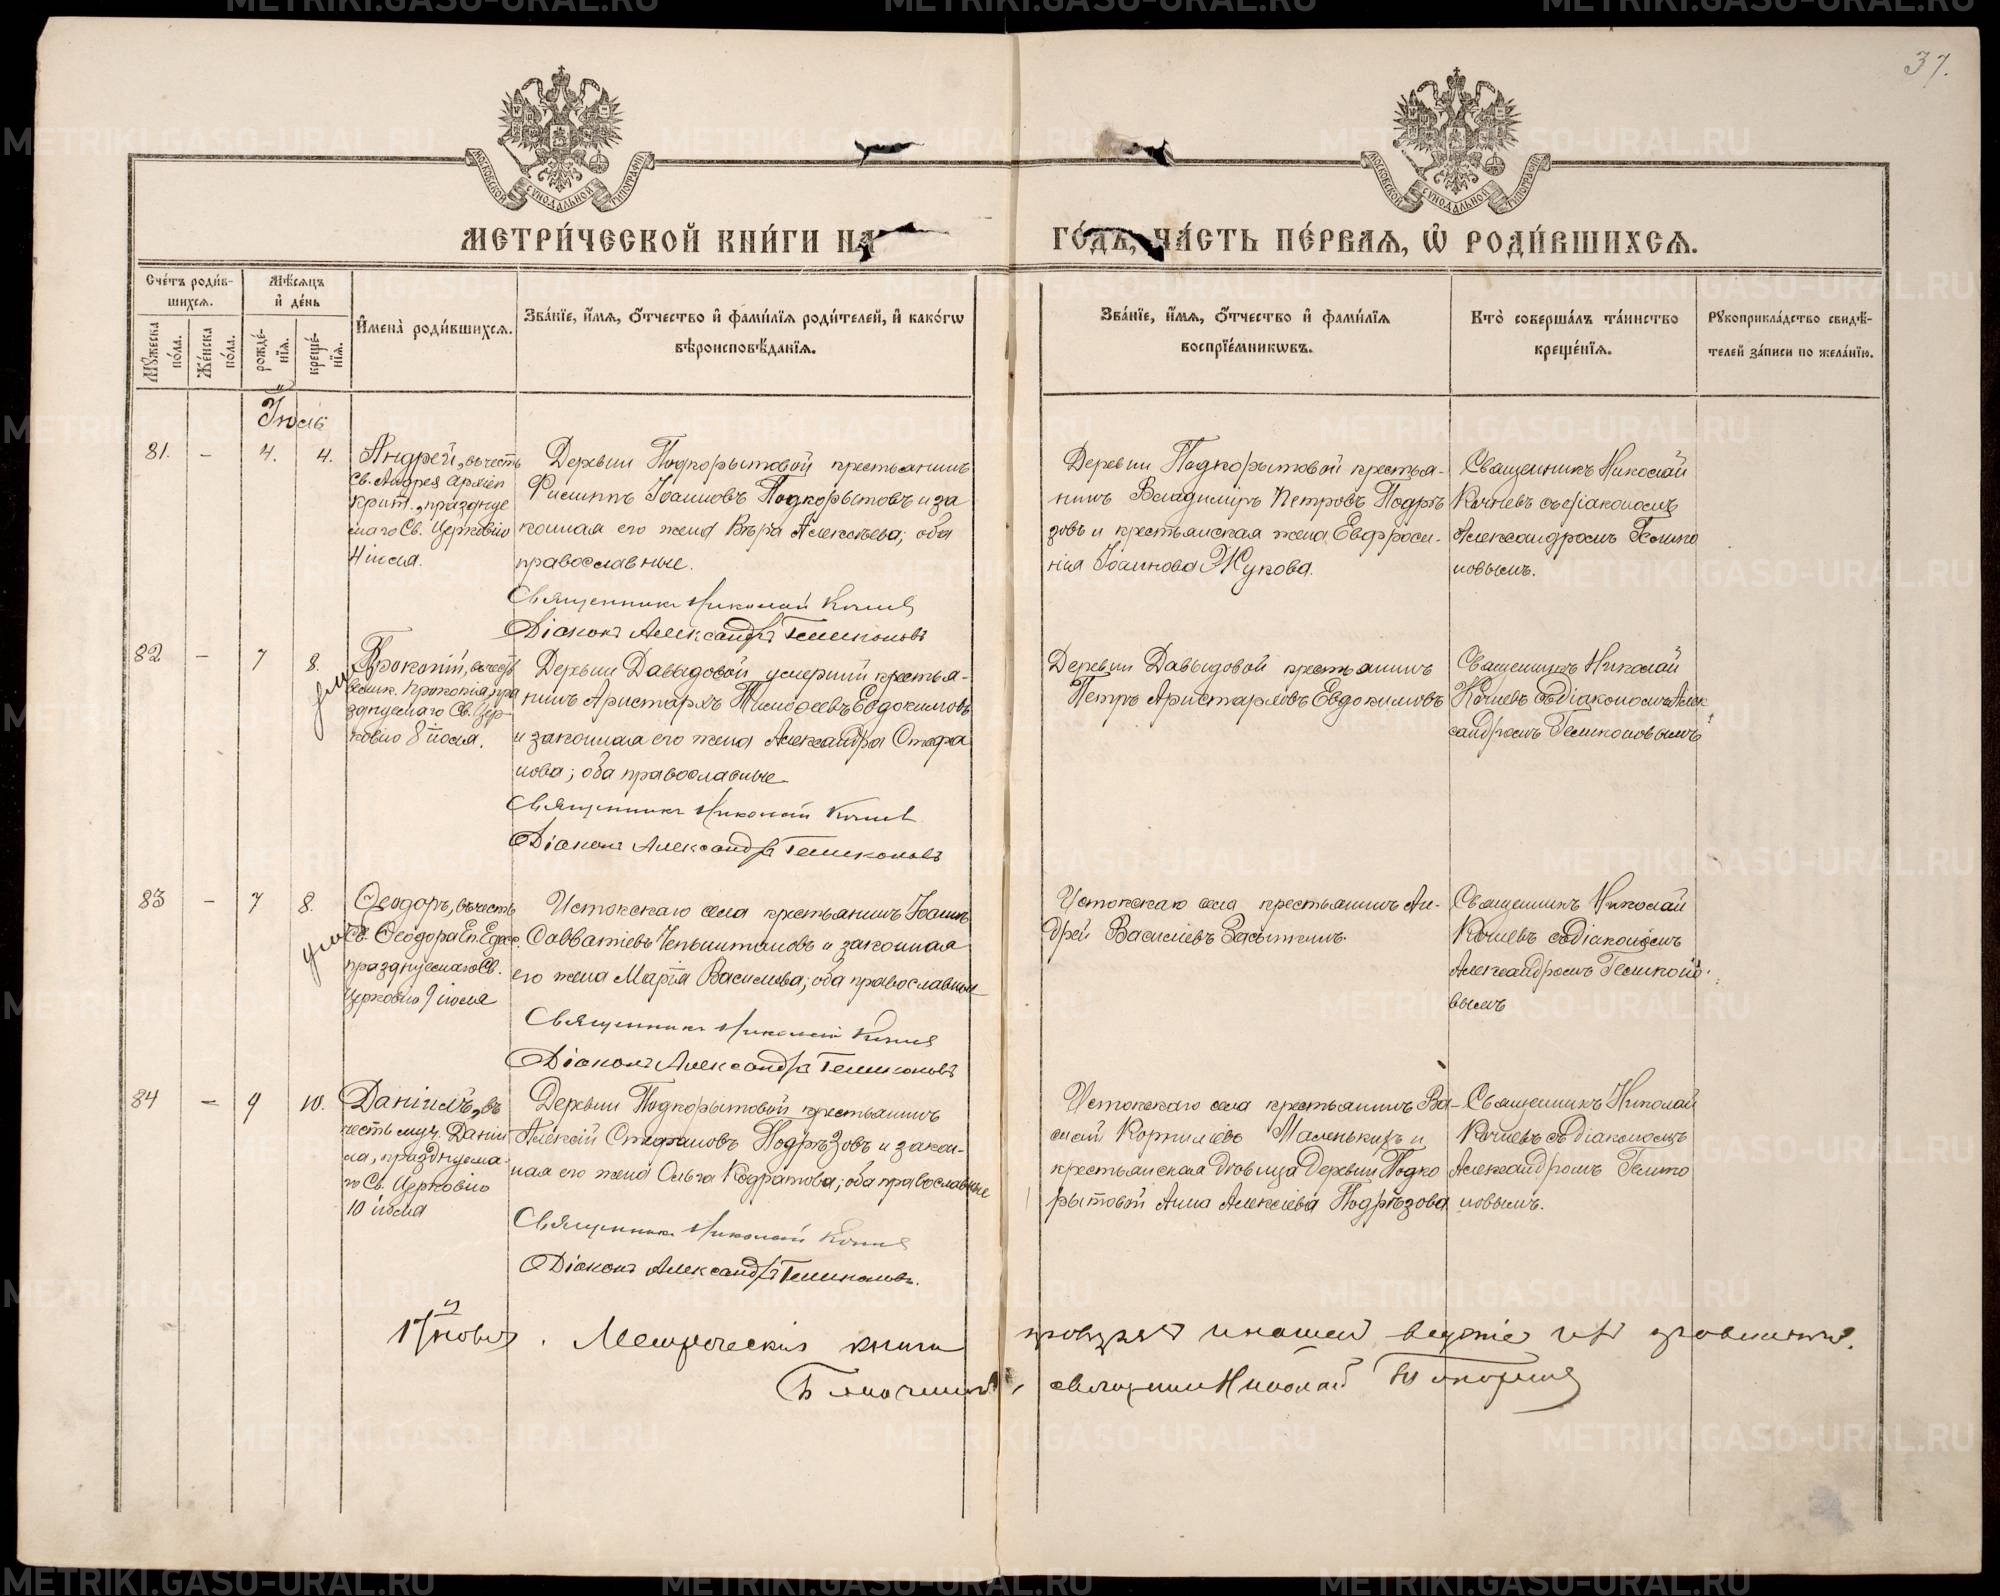 37.
МОСКОВСКОЙ СѴНОДАЛЬНОЙ ТИПОГРАФІИ
МОСКОВСКОЙ СѴНОДАЛЬНОЙ ТИПОГРАФІИ
МЕТРИ́ЧЕСКОЙ КНИ́ГИ НА ГО́ДЪ, ЧА́СТЬ ПЕ́РВАЯ, Ѡ҆ РОДИ́ВШИХСЯ.
Сче́тъ роди́в-
шихся.
Мѣ́сяцъ
и҆ де́нь
Мꙋ́жеска по́ла.
Же́нска по́ла.
рожде́-
нїя.
креще́-
нїя.
И҆мена̀ роди́вшихся.
Зва́нїе, и҆́мя, ѻ҆́тчество и҆ фами́лїя роди́телей, и҆ како́гѡ
вѣроисповѣ́данїя.
Зва́нїе, и҆́мя, ѻ҆́тчество и҆ фами́лїя
воспрїе́мникѡвъ.
Кто̀ соверша́лъ та́инство
креще́нїя.
Рꙋкоприкла́дство свидѣ́-
телей за́писи по жела́нїю.
Іюль
81. - 4. 4.
Андрей, въ честь
Св. Андрея Архіеп
Крит., праздnуе
маго Св. Церковію
4 іюля.
Деревни Подкорытовой крестьянинъ
Филиппъ Іоанновъ Подкорытовъ и за
конная его жена Вѣра Алексѣева; оба
православные.
Священникъ Николай Кочнев
Діаконъ Александръ Геликоновъ
Деревни Подкорытовой крестья-
нинъ Владиміръ Петровъ Подрѣ
зовъ и крестьянская жена Евфроси-
нія Іоаннова Жукова.
Священникъ Николай
Кочневъ съ діакономъ
Александромъ Гелико
новымъ.
82 - 7 8.
ум.
Прокопій, въ честь
велик. Прокопія, пра
зднуемаго Св. Цер-
ковію 8 іюля.
Деревни Давыдовой умерший крестья-
нинъ Аристархъ Тимоѳеевъ Евдокимовъ
и законная его жена Александра Стефа
нова; оба православные
Священникъ Николай Кочнев
Діаконъ Александръ Геликоновъ
Деревни Давыдовой крестьянинъ
Петръ Аристарховъ Евдокимовъ
Священникъ Николай
Кочневъ съ діакономъ Алек
сандромъ Геликоновымъ
83 - 7 8.
ум.
Ѳеодоръ, въ честь
Св. Ѳеодора Еп. Едесс.
празднуемаго Св.
Церковію 9 іюля
Истокскаго села крестьянинъ Іоаннъ
Савватіевъ Ченыштановъ и законная
его жена Марія Васильева; оба православные
Священникъ Николай Кочнев
Діаконъ Александръ Геликоновъ
Истокскаго села крестьянинъ Ан-
дрей Василіевъ Засыпкинъ.
Священникъ Николай
Кочневъ съ діакономъ
Александромъ Геликоно-
вымъ
84 - 9 10.
Даніилъ, въ
честь муч. Дании
ла, празднуема-
го Св. Церковію
10 іюля
Деревни Подкорытовой крестьянинъ
Алексій Стефановъ Подрѣзовъ и закон-
ная его жена Ольга Кодратова; оба православные
Священникъ Николай Кочнев
Діаконъ Александръ Геликоновъ.
Истокскаго села крестьянинъ Ва-
силій Корниліевъ Маленькихъ и
крестьянская дѣвица деревни Подко
рытовой Анна Алексіева Подрѣзова
Священникъ Николай
Кочневъ съ діакономъ
Александромъ Гелико
новымъ.
17 іюля. Метрическія книги
Благочинный, священник Николай